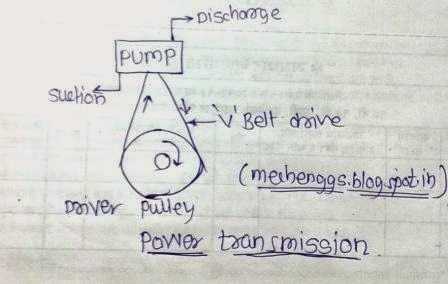 Discharge
PUMP
Suction
'V' Belt drive
(mechenggs.blogspot.in)
Driver Pulley
Power transmission